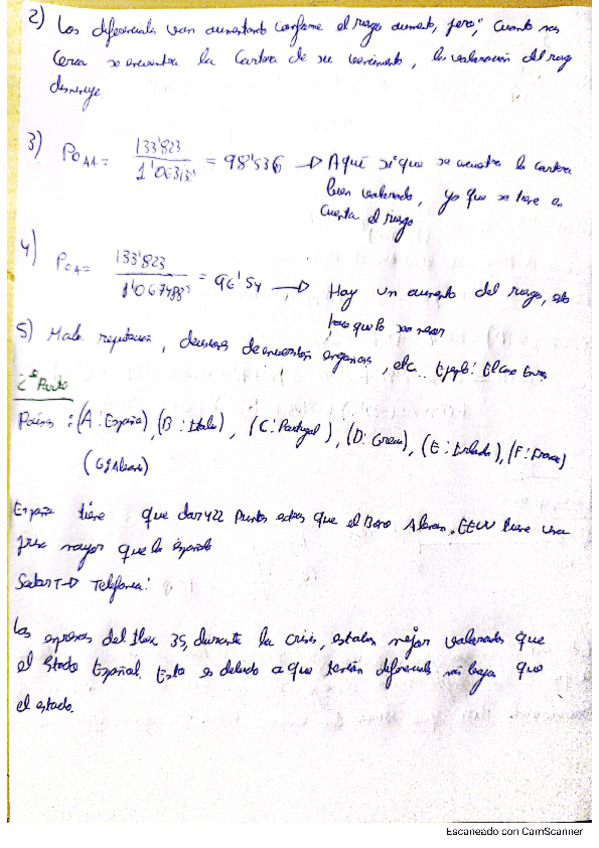 2) Los diferenciales van aumentando conforme el riesgo aumenta, pero; cuanto mas
cerca se encuentra la cartera de su vencimiento, la valoración del riesgo
disminuye
3) P0AA = 133'823 / 1'06313⁵ = 98'536 → Aquí si que se encuentra la cartera
bien valorada, ya que se tiene en
cuenta el riesgo
4) P0A = 133'823 / 1'067488⁵ = 96'54 → Hay un aumento del riesgo,
5) Mala reputación, decisiones de inversión, etc... Ejemplo: El caso
2ª Parte
Países: (A: España), (B: Italia), (C: Portugal), (D: Grecia), (E: Irlanda), (F: Francia)
(G: Alemania)
España tiene que dar 422 puntos extras que el Bono Aleman. EEUU tiene una
prix mayor que la española
Sector T → Telefonia:
Las empresas del Ibex 35, durante la crisis, estaban mejor valoradas que
el Estado Español. Esto es debido a que tenían diferenciales más bajos que
el estado.
Escaneado con CamScanner